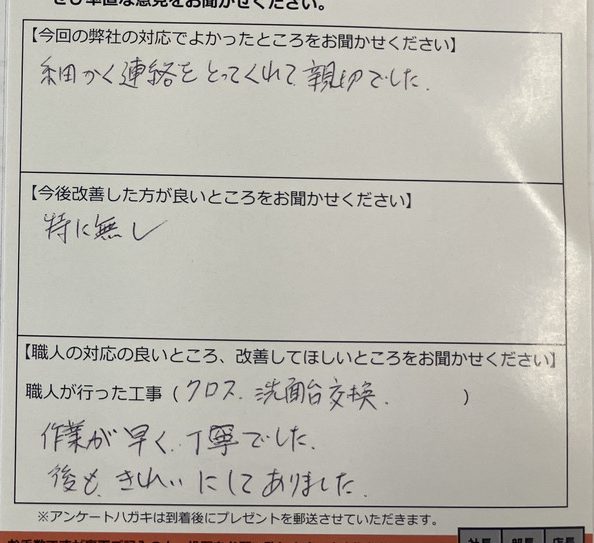 ぜひ率直な意見をお聞かせください。
【今回の弊社の対応でよかったところをお聞かせください】
細かく連絡をとってくれて、親切でした。
【今後改善した方が良いところをお聞かせください】
特に無し
【職人の対応の良いところ、改善してほしいところをお聞かせください】
職人が行った工事（クロス、洗面台交換、）
作業が早く、丁寧でした。
後も、きれいにしてありました。
※アンケートハガキは到着後にプレゼントを郵送させていただきます。
社長 部長 店長